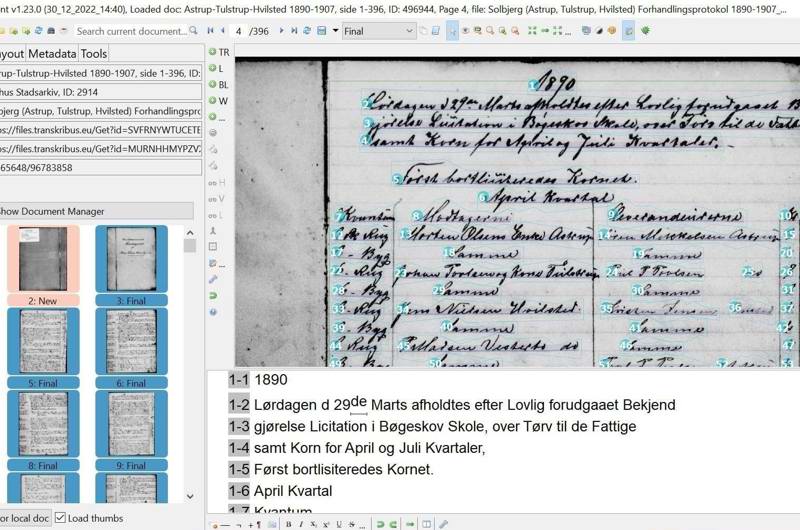 nt v1.23.0 (30_12_2022_14:40), Loaded doc: Astrup-Tulstrup-Hvilsted 1890-1907, side 1-396, ID: 496944, Page 4, file: Solbjerg (Astrup, Tulstrup, Hvilsted) Forhandlingsprotokol 1890-1907_...
Search current document...
4 /396
Final
ayout Metadata Tools
rup-Tulstrup-Hvilsted 1890-1907, side 1-396, ID:
hus Stadsarkiv, ID: 2914
bjerg (Astrup, Tulstrup, Hvilsted) Forhandlingspro
ps://files.transkribus.eu/Get?id=SVFRNYWTUCETE
ps://files.transkribus.eu/Get?id=MURNHHMYPZV
65648/96783858
Show Document Manager
2: New
3: Final
5: Final
6: Final
8: Final
9: Final
or local doc
Load thumbs
TR
L
BL
W
...
H
V
L
1 1890
2 Lørdagen d 29de Marts afholdtes efter Lovlig forudgaaet B
3 gjørelse Licitation i Bøgeskov Skole, over Tørv til de Fatt
4 samt Korn for April og Juli Kvartaler,
5 Først bortlisiteredes Kornet.
6 April Kvartal
7 Kvantum 8 Modtagerne 9 Leverandørerne 10
Rug Morten Olsens Enke Astrup Mikkelsen Astrup 15
- Byg Samme Samme
- Rug Johan
- Byg 29 Samme 30 Samme
- Rug Jens Nielsen Hvilsted 37
39 - Byg 40 Samme 41 Samme
44 - Rug Madsen do 46 Samme
1-1 1890
1-2 Lørdagen d 29de Marts afholdtes efter Lovlig forudgaaet Bekjend
1-3 gjørelse Licitation i Bøgeskov Skole, over Tørv til de Fattige
1-4 samt Korn for April og Juli Kvartaler,
1-5 Først bortlisiteredes Kornet.
1-6 April Kvartal
1-7 Kvantum